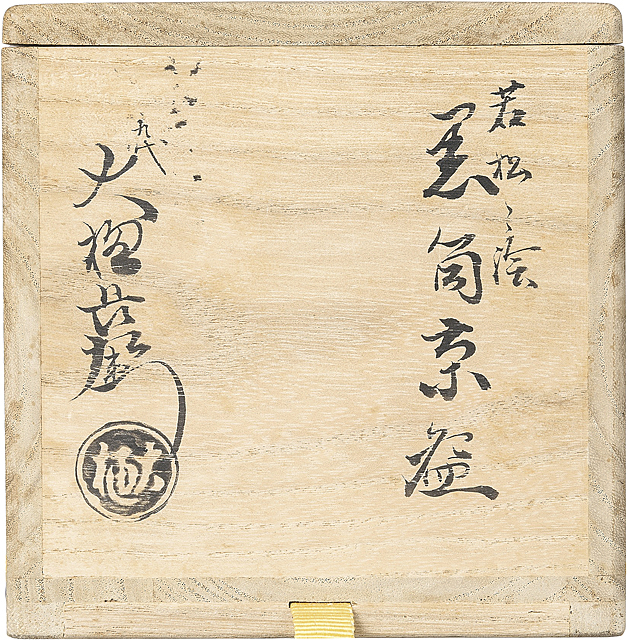 若松之絵
黒筒茶盌
九代
大樋長左衛門